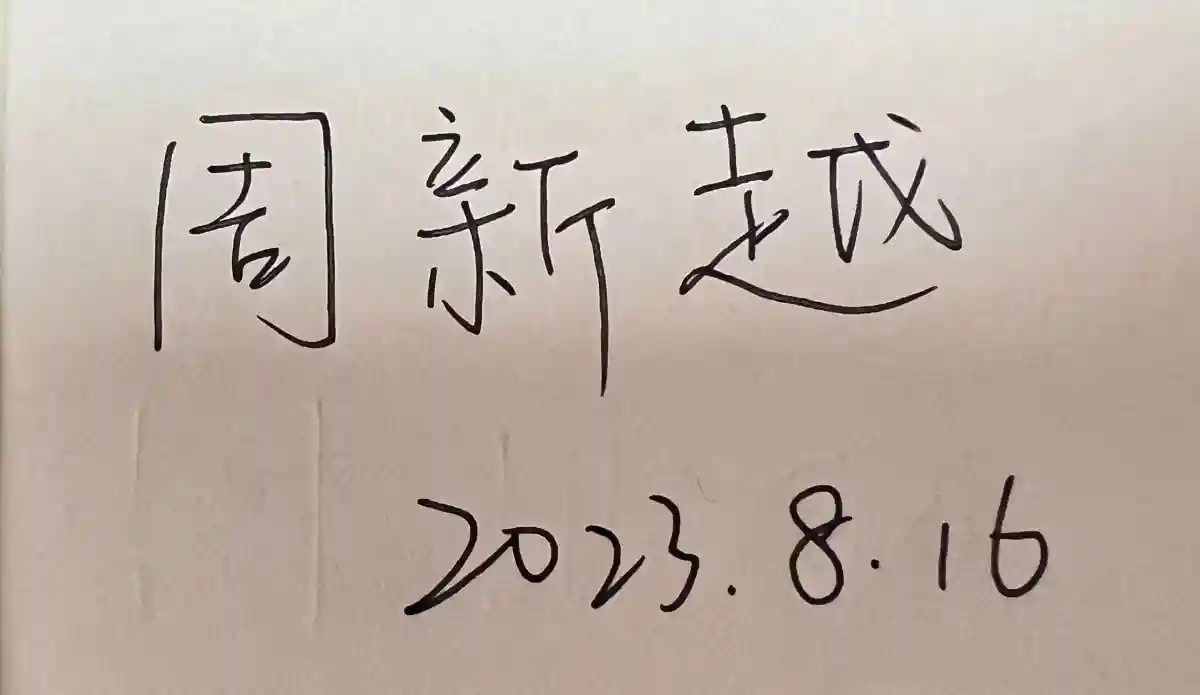 周新越
2023.8.16